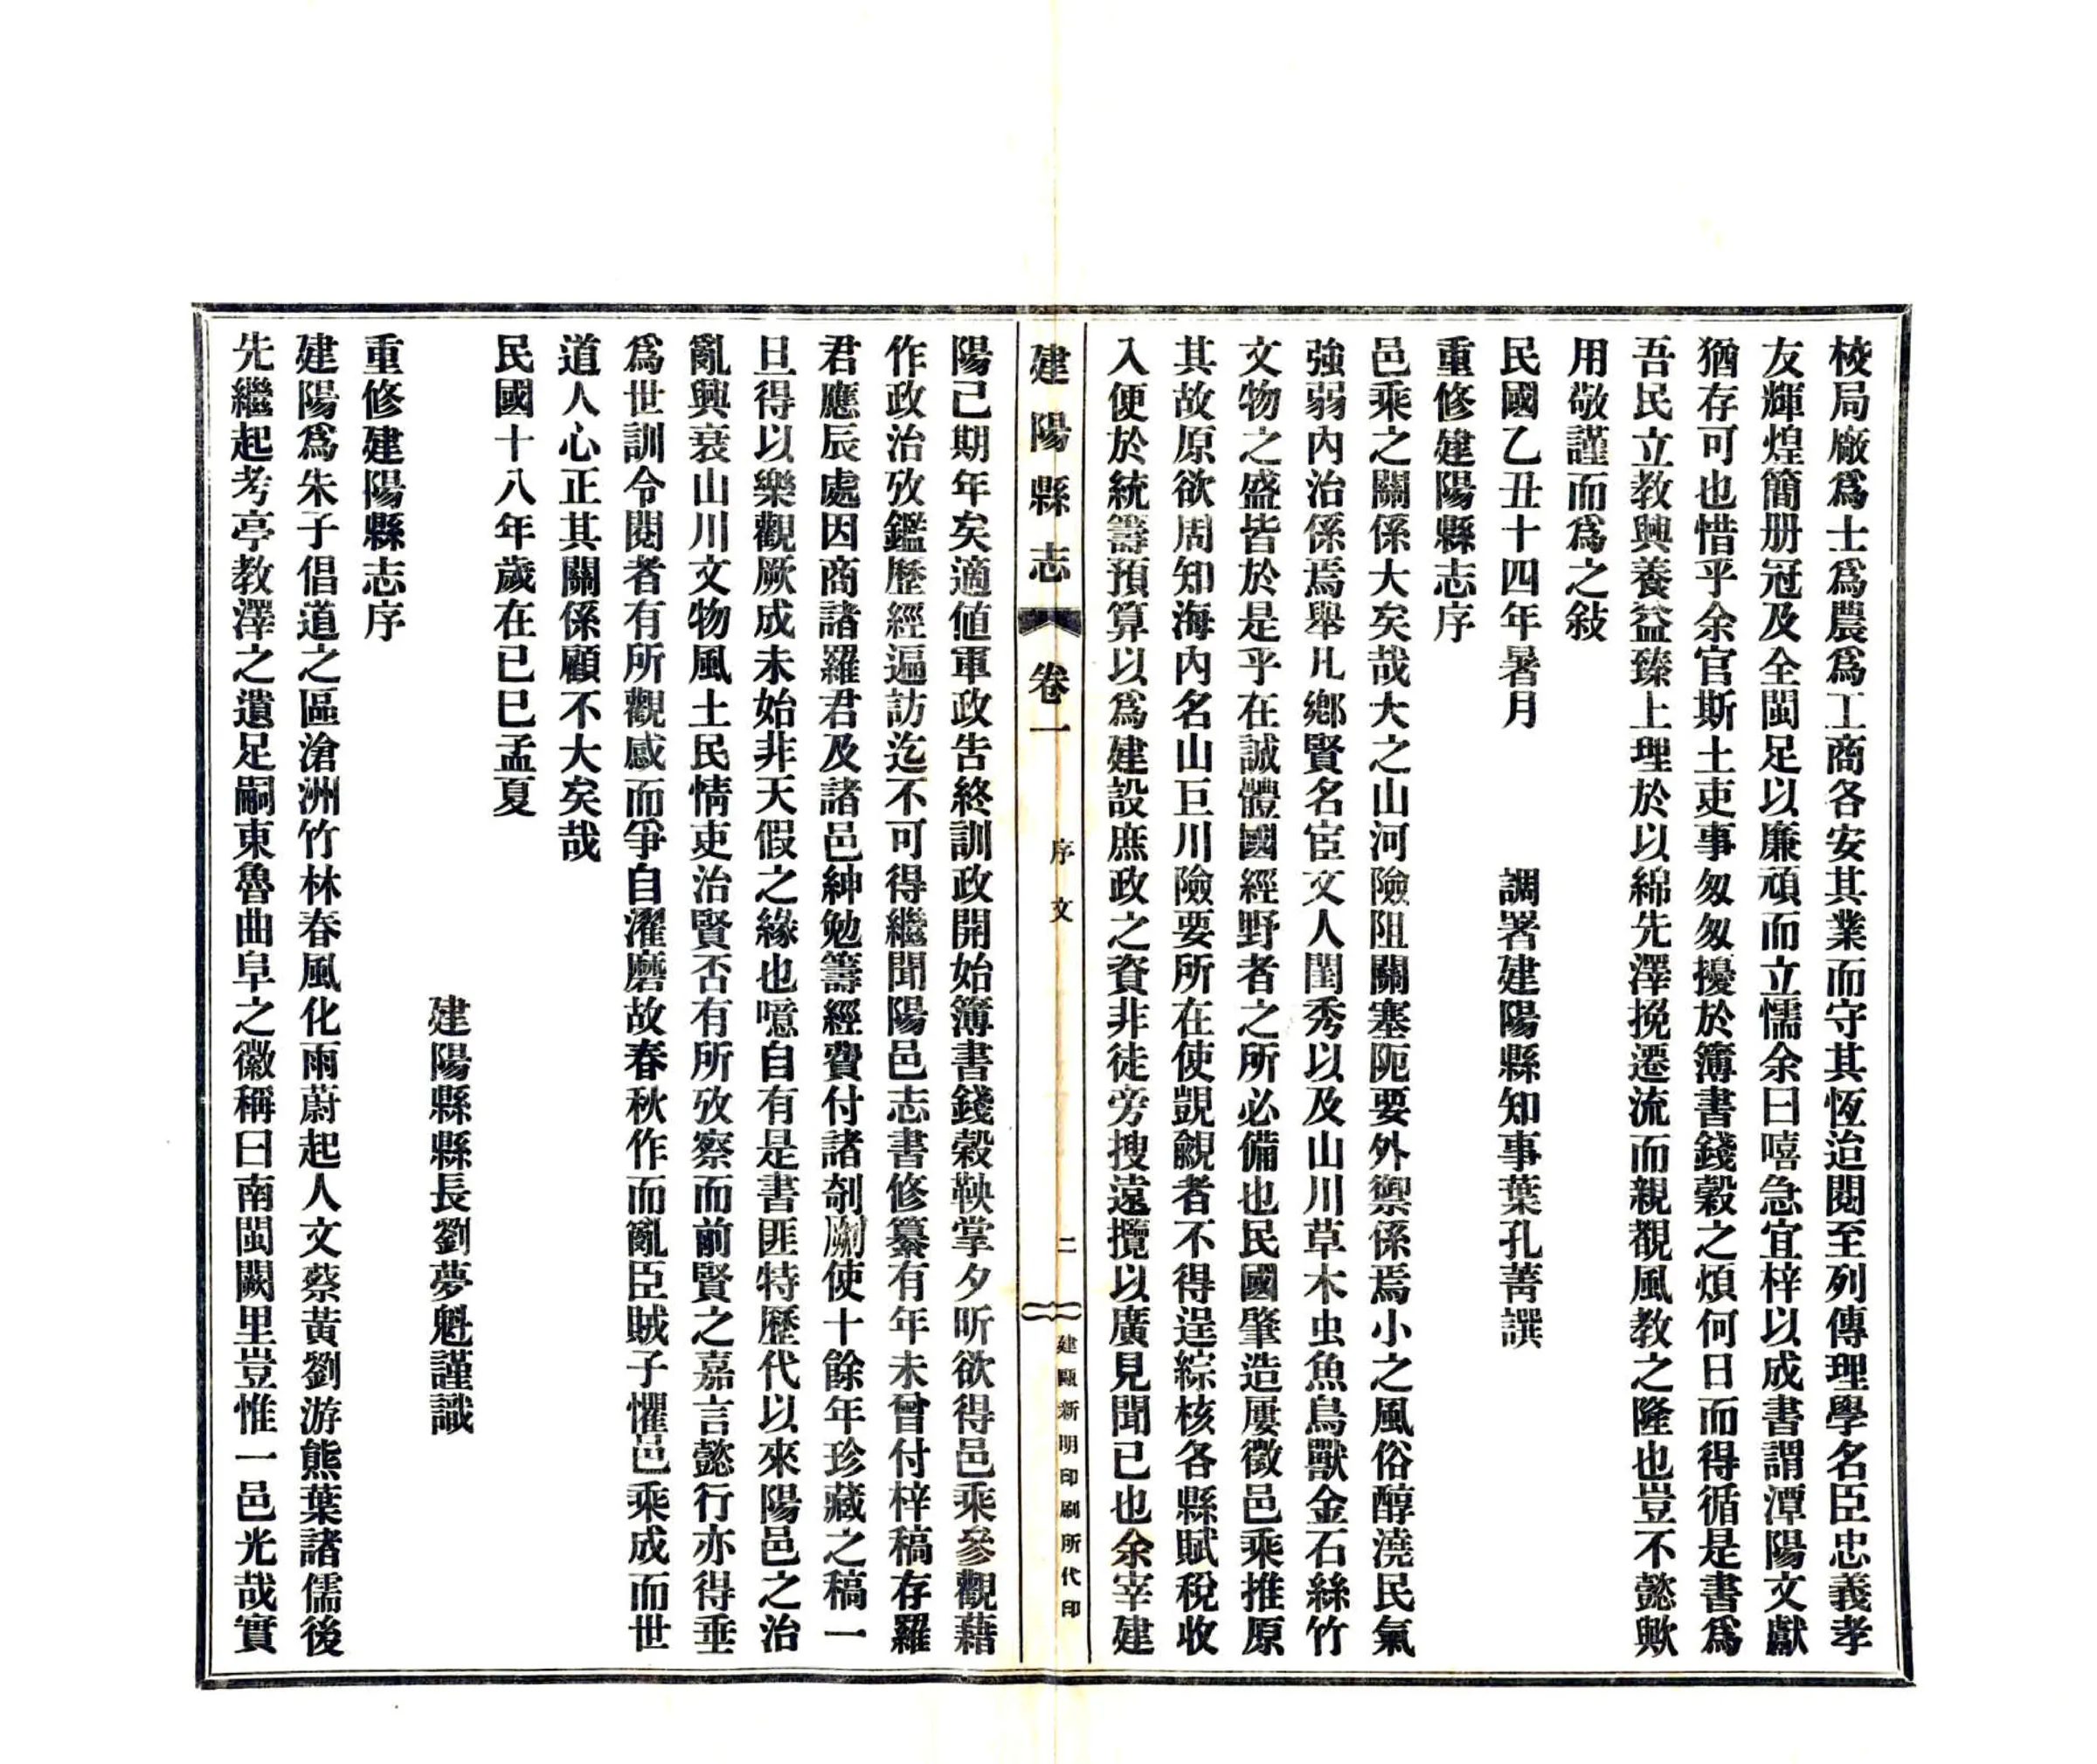 校局廠爲士爲農爲工商各安其業而守其恆迨閱至列傳理學名臣忠義孝
友輝煌簡册冠及全閩足以廉頑而立懦余曰嘻急宜梓以成書謂潭陽文獻
猶存可也惜乎余官斯土吏事匆匆擾於簿書錢穀之煩何日而得循是書爲
吾民立教興養益臻上理於以綿先澤挽遷流而親覩風教之隆也豈不懿歟
用敬謹而爲之敍
民國乙丑十四年暑月 調署建陽縣知事葉孔菁譔
重修建陽縣志序
邑乘之關係大矣哉大之山河險阻關塞阨要外禦係焉小之風俗醇澆民氣
強弱內治係焉舉凡鄉賢名宦文人閨秀以及山川草木虫魚鳥獸金石絲竹
文物之盛皆於是乎在誠體國經野者之所必備也民國肇造屢徵邑乘推原
其故原欲周知海內名山巨川險要所在使覬覦者不得逞綜核各縣賦稅收
入便於統籌預算以爲建設庶政之資非徒旁搜遠攬以廣見聞已也余宰建
建陽縣志 卷一 序文 二 建甌新明印刷所代印
陽已期年矣適值軍政告終訓政開始簿書錢穀鞅掌夕昕欲得邑乘參觀藉
作政治攷鑑歷經遍訪迄不可得繼聞陽邑志書修纂有年未曾付梓稿存羅
君應辰處因商諸羅君及諸邑紳勉籌經費付諸剞劂使十餘年珍藏之稿一
旦得以樂觀厥成未始非天假之緣也噫自有是書匪特歷代以來陽邑之治
亂興衰山川文物風土民情吏治賢否有所攷察而前賢之嘉言懿行亦得垂
爲世訓令閱者有所觀感而爭自濯磨故春秋作而亂臣賊子懼邑乘成而世
道人心正其關係顧不大矣哉
民國十八年歲在己巳孟夏
建陽縣縣長劉夢魁謹識
重修建陽縣志序
建陽爲朱子倡道之區滄洲竹林春風化雨蔚起人文蔡黃劉游熊葉諸儒後
先繼起考亭教澤之遺足嗣東魯曲阜之徽稱曰南閩闕里豈惟一邑光哉實